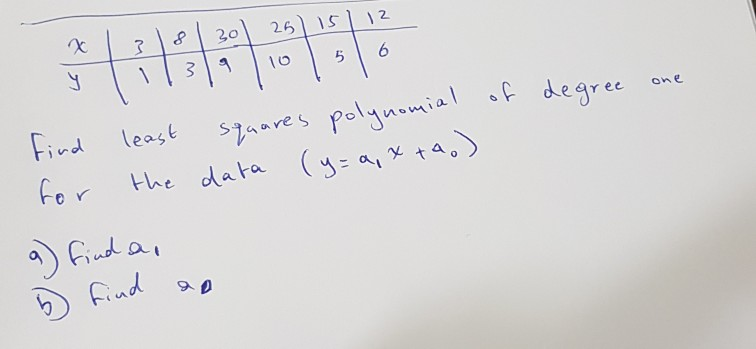 x | 3 | 8 | 30 | 25 | 15 | 12
y | 1 | 3 | 9 | 10 | 5 | 6
Find least squares polynomial of degree one
for the data (y = a₁ x + a₀)
a) find a₁
b) find a₀